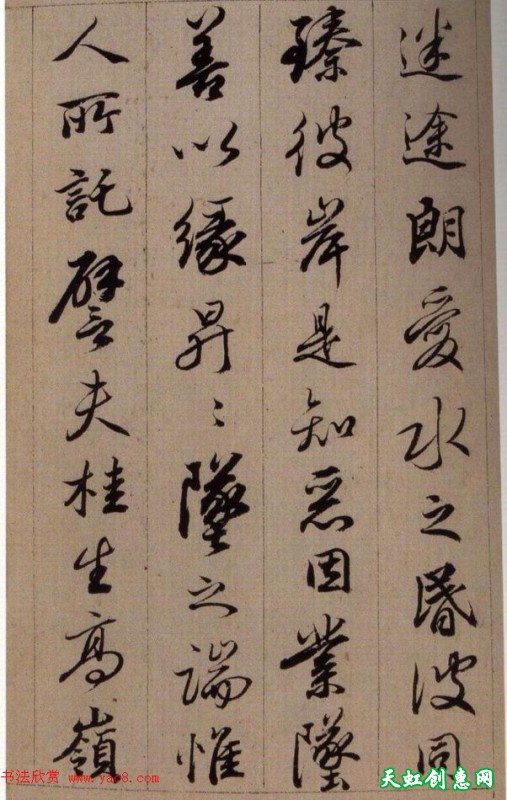 迷途朗愛水之昬波同
臻彼岸是知惡因業墜
善以緣昇〻墜之端惟
人所託譬夫桂生高嶺
书法欣赏 www.yac8.com
天虹创惠网